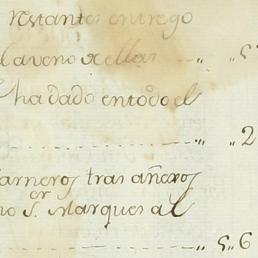 restantes entrego
l aveno de ellas „ 5
ha dado en todo el
„ 2
arneros tras añeros
no Sr. Marques al
„ 56